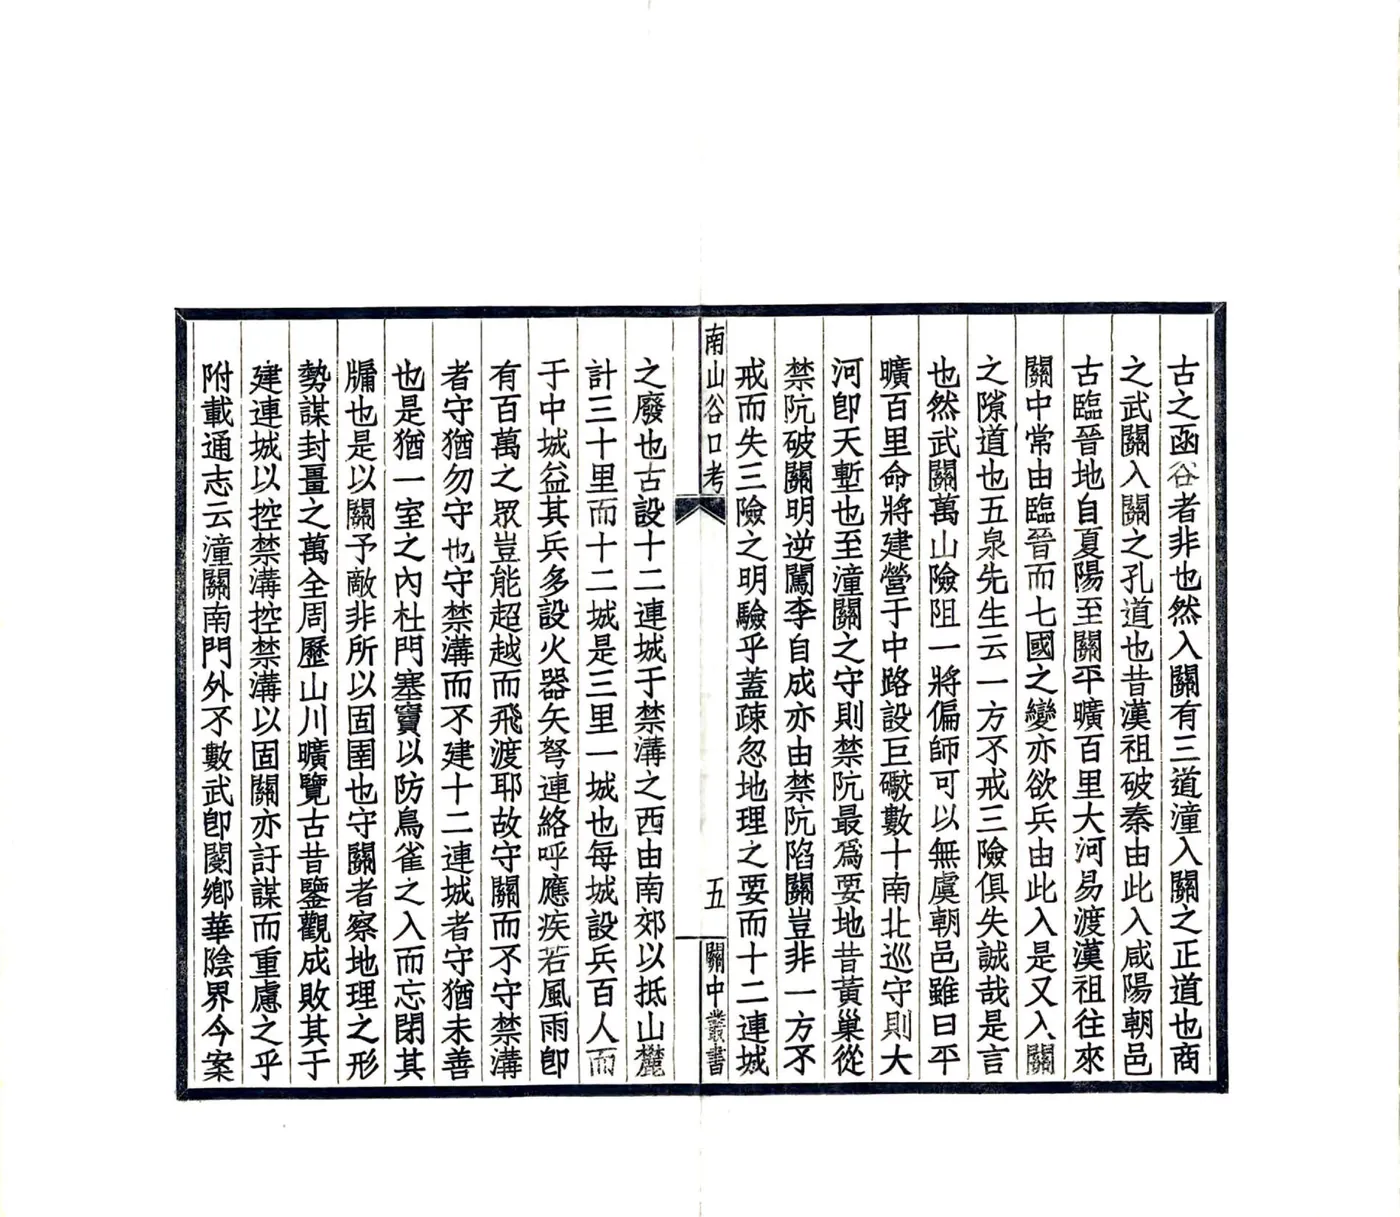 古之函谷者非也然入關有三道潼入關之正道也商
之武關入關之孔道也昔漢祖破秦由此入咸陽朝邑
古臨晉地自夏陽至關平曠百里大河易渡漢祖往來
關中常由臨晉而七國之變亦欲兵由此入是又入關
之隙道也五泉先生云一方不戒三險俱失誠哉是言
也然武關萬山險阻一將偏師可以無虞朝邑雖曰平
曠百里命將建營于中路設巨礮數十南北巡守則大
河卽天塹也至潼關之守則禁阬最爲要地昔黃巢從
禁阬破關明逆闖李自成亦由禁阬陷關豈非一方不
戒而失三險之明驗乎蓋疎忽地理之要而十二連城
南山谷口考
五
關中叢書
之廢也古設十二連城于禁溝之西由南郊以抵山麓
計三十里而十二城是三里一城也每城設兵百人而
于中城益其兵多設火器矢弩連絡呼應疾若風雨卽
有百萬之眾豈能超越而飛渡耶故守關而不守禁溝
者守猶勿守也守禁溝而不建十二連城者守猶未善
也是猶一室之內杜門塞竇以防鳥雀之入而忘閉其
牗也是以關予敵非所以固圉也守關者察地理之形
勢謀封疆之萬全周歷山川曠覽古昔鑒觀成敗其于
建連城以控禁溝控禁溝以固關亦訏謀而重慮之乎
附載通志云潼關南門外不數武卽閿鄉華陰界今案